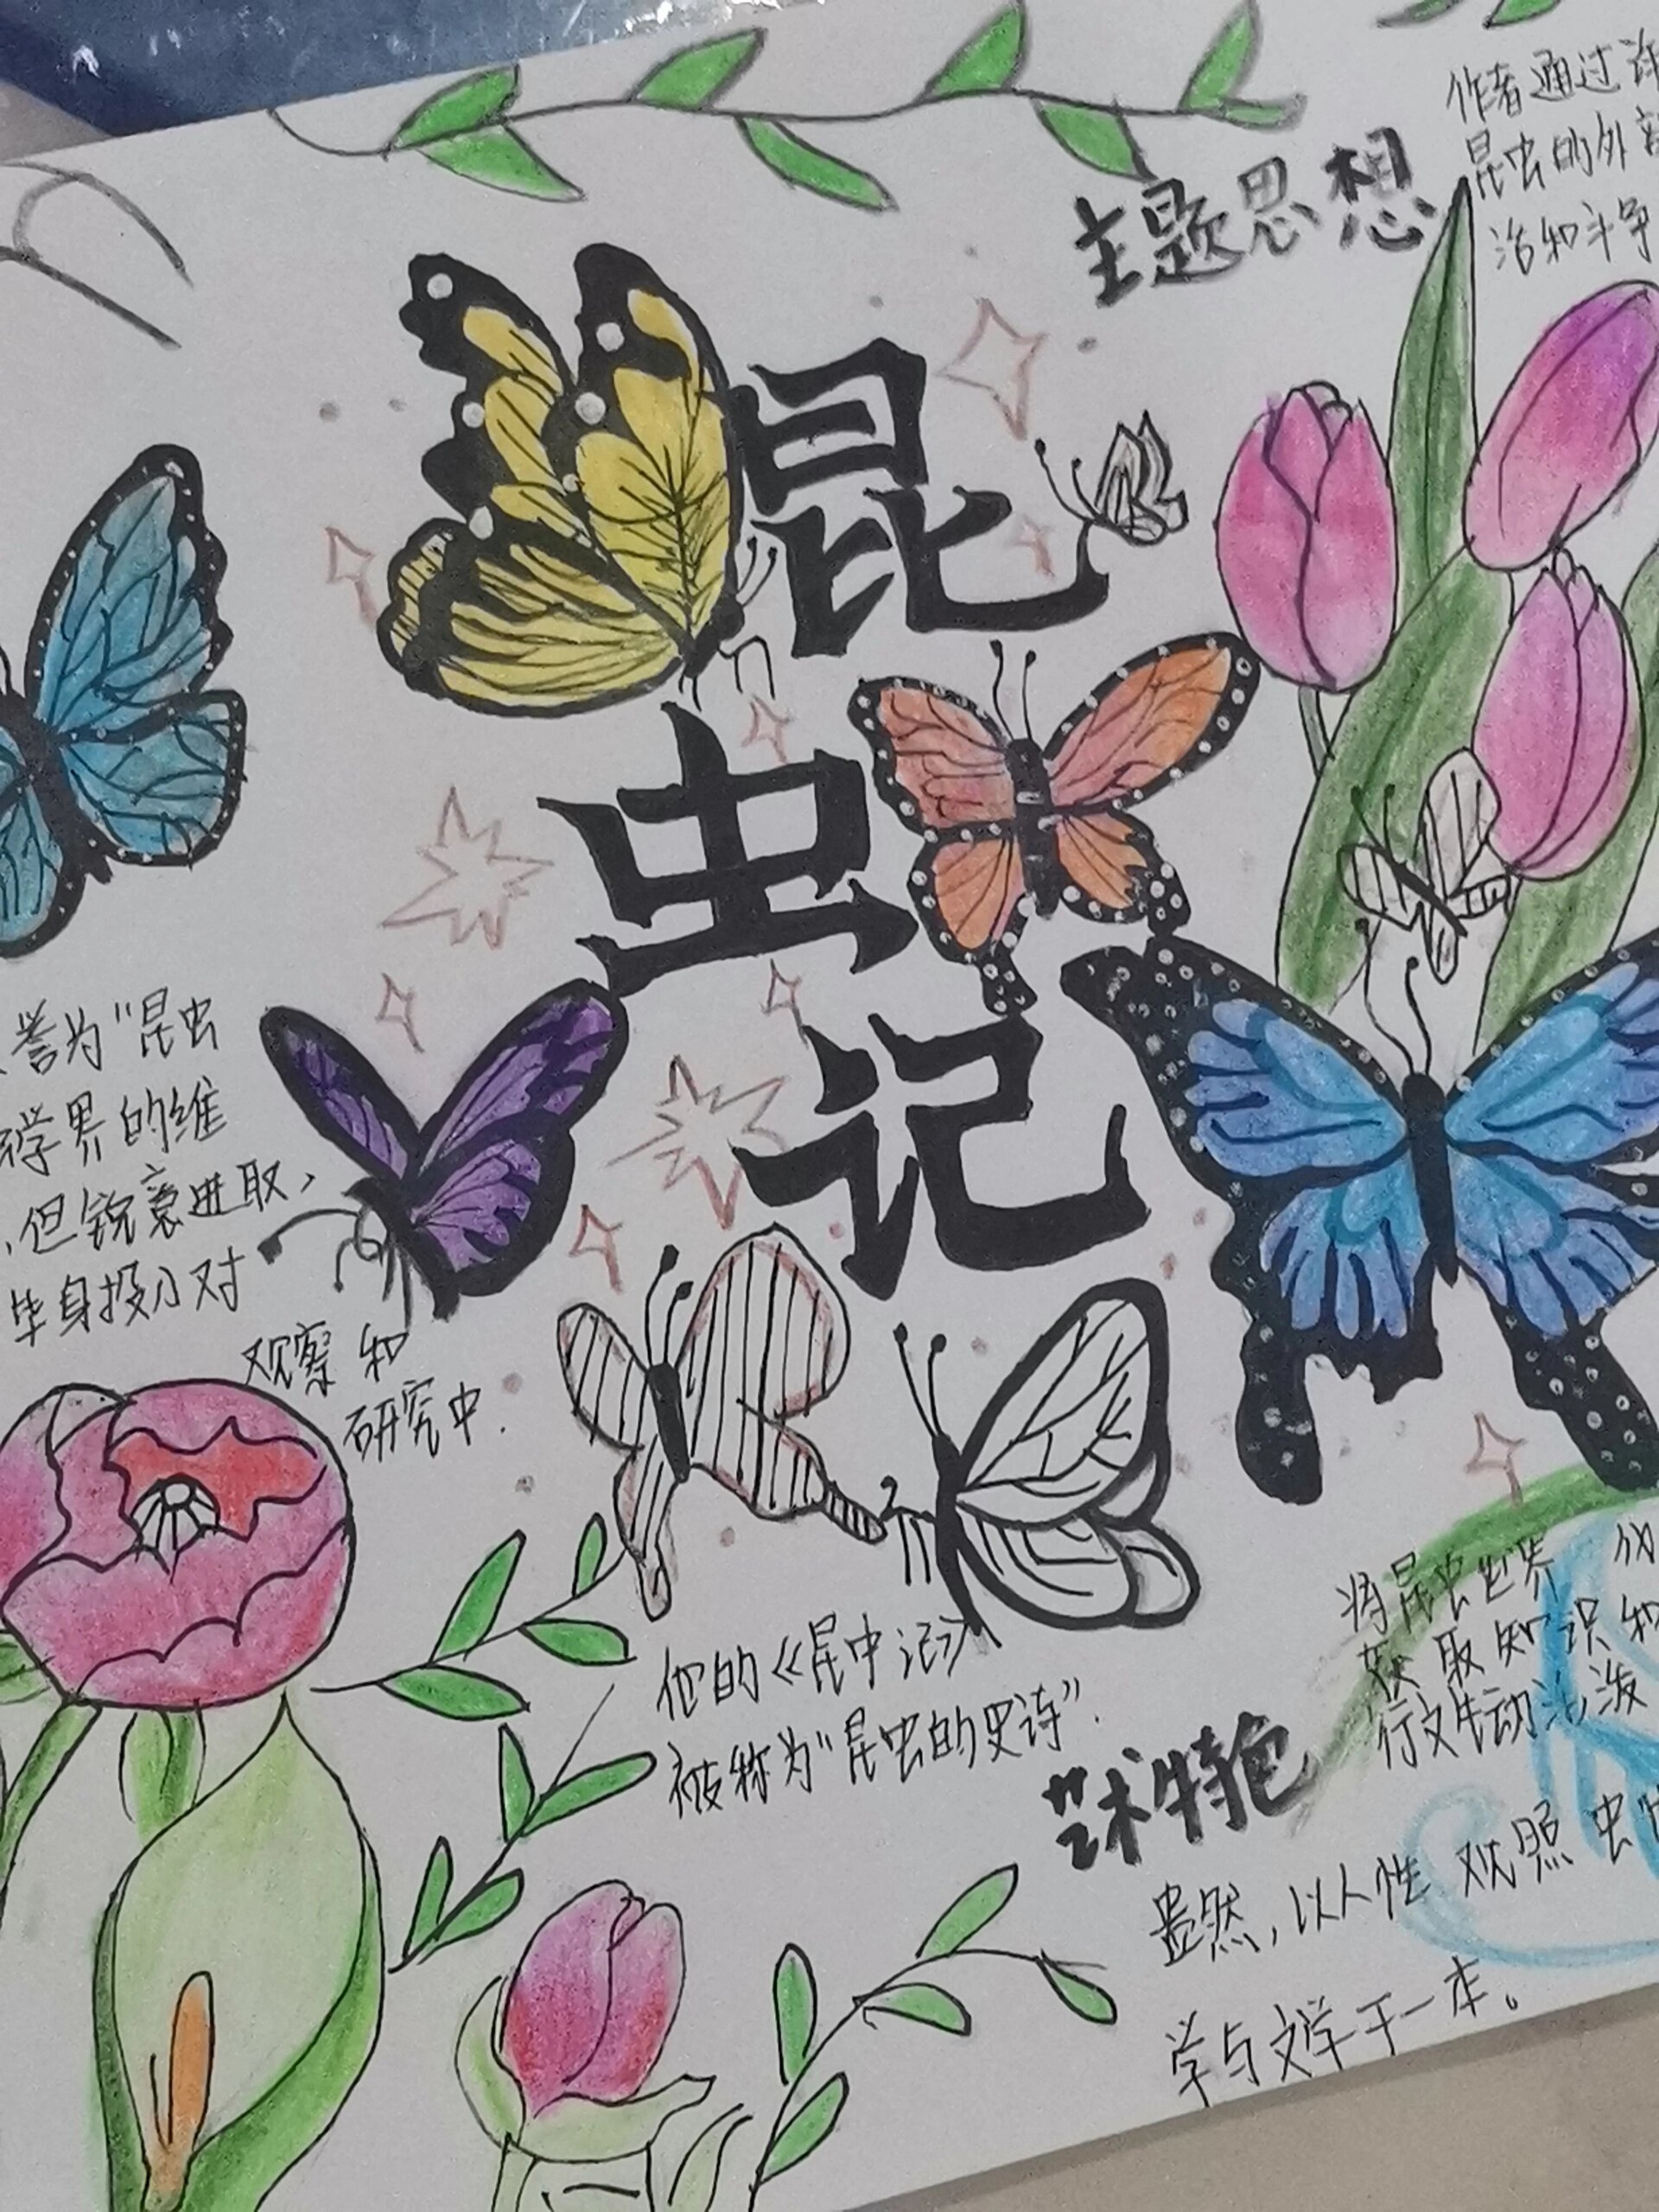 主题思想
作者通过
昆虫的外
活和斗争
昆
虫
记
誉为"昆虫
学界的维
,但锐意进取,
毕身投入对
观察和
研究中.
他的《昆中记》
被称为"昆虫的史诗".
艺术特色
将昆虫世界
获取知识和
行文生动活泼
显然,以人性观照虫
学与文学于一本。